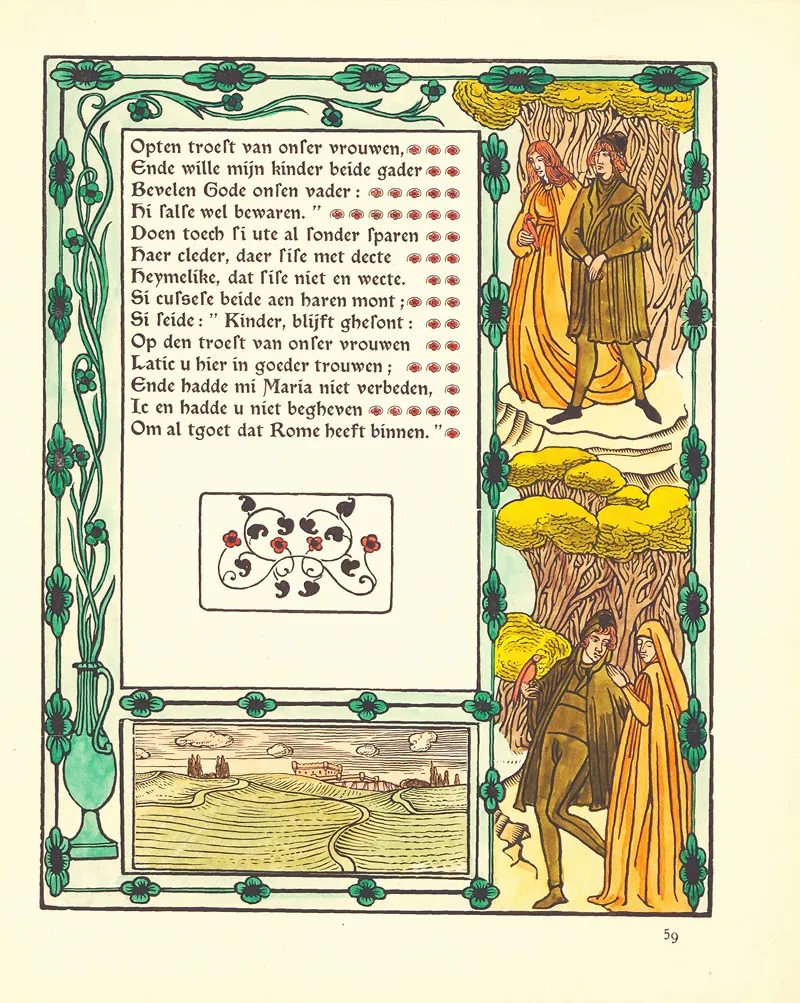 Opten troeſt van onſer vrouwen,
Ende wille mijn kinder beide gader
Bevelen Gode onſen vader :
Hi ſalſe wel bewaren. ”
Doen toech ſi ute al ſonder ſparen
Haer cleder, daer ſiſe met decte
Heymelike, dat ſiſe niet en wecte.
Si cuſseſe beide aen haren mont ;
Si ſeide : ” Kinder, blijft gheſont :
Op den troeſt van onſer vrouwen
Latic u hier in goeder trouwen ;
Ende hadde mi Maria niet verbeden,
Ic en hadde u niet begheven
Om al tgoet dat Rome heeft binnen. ”
59